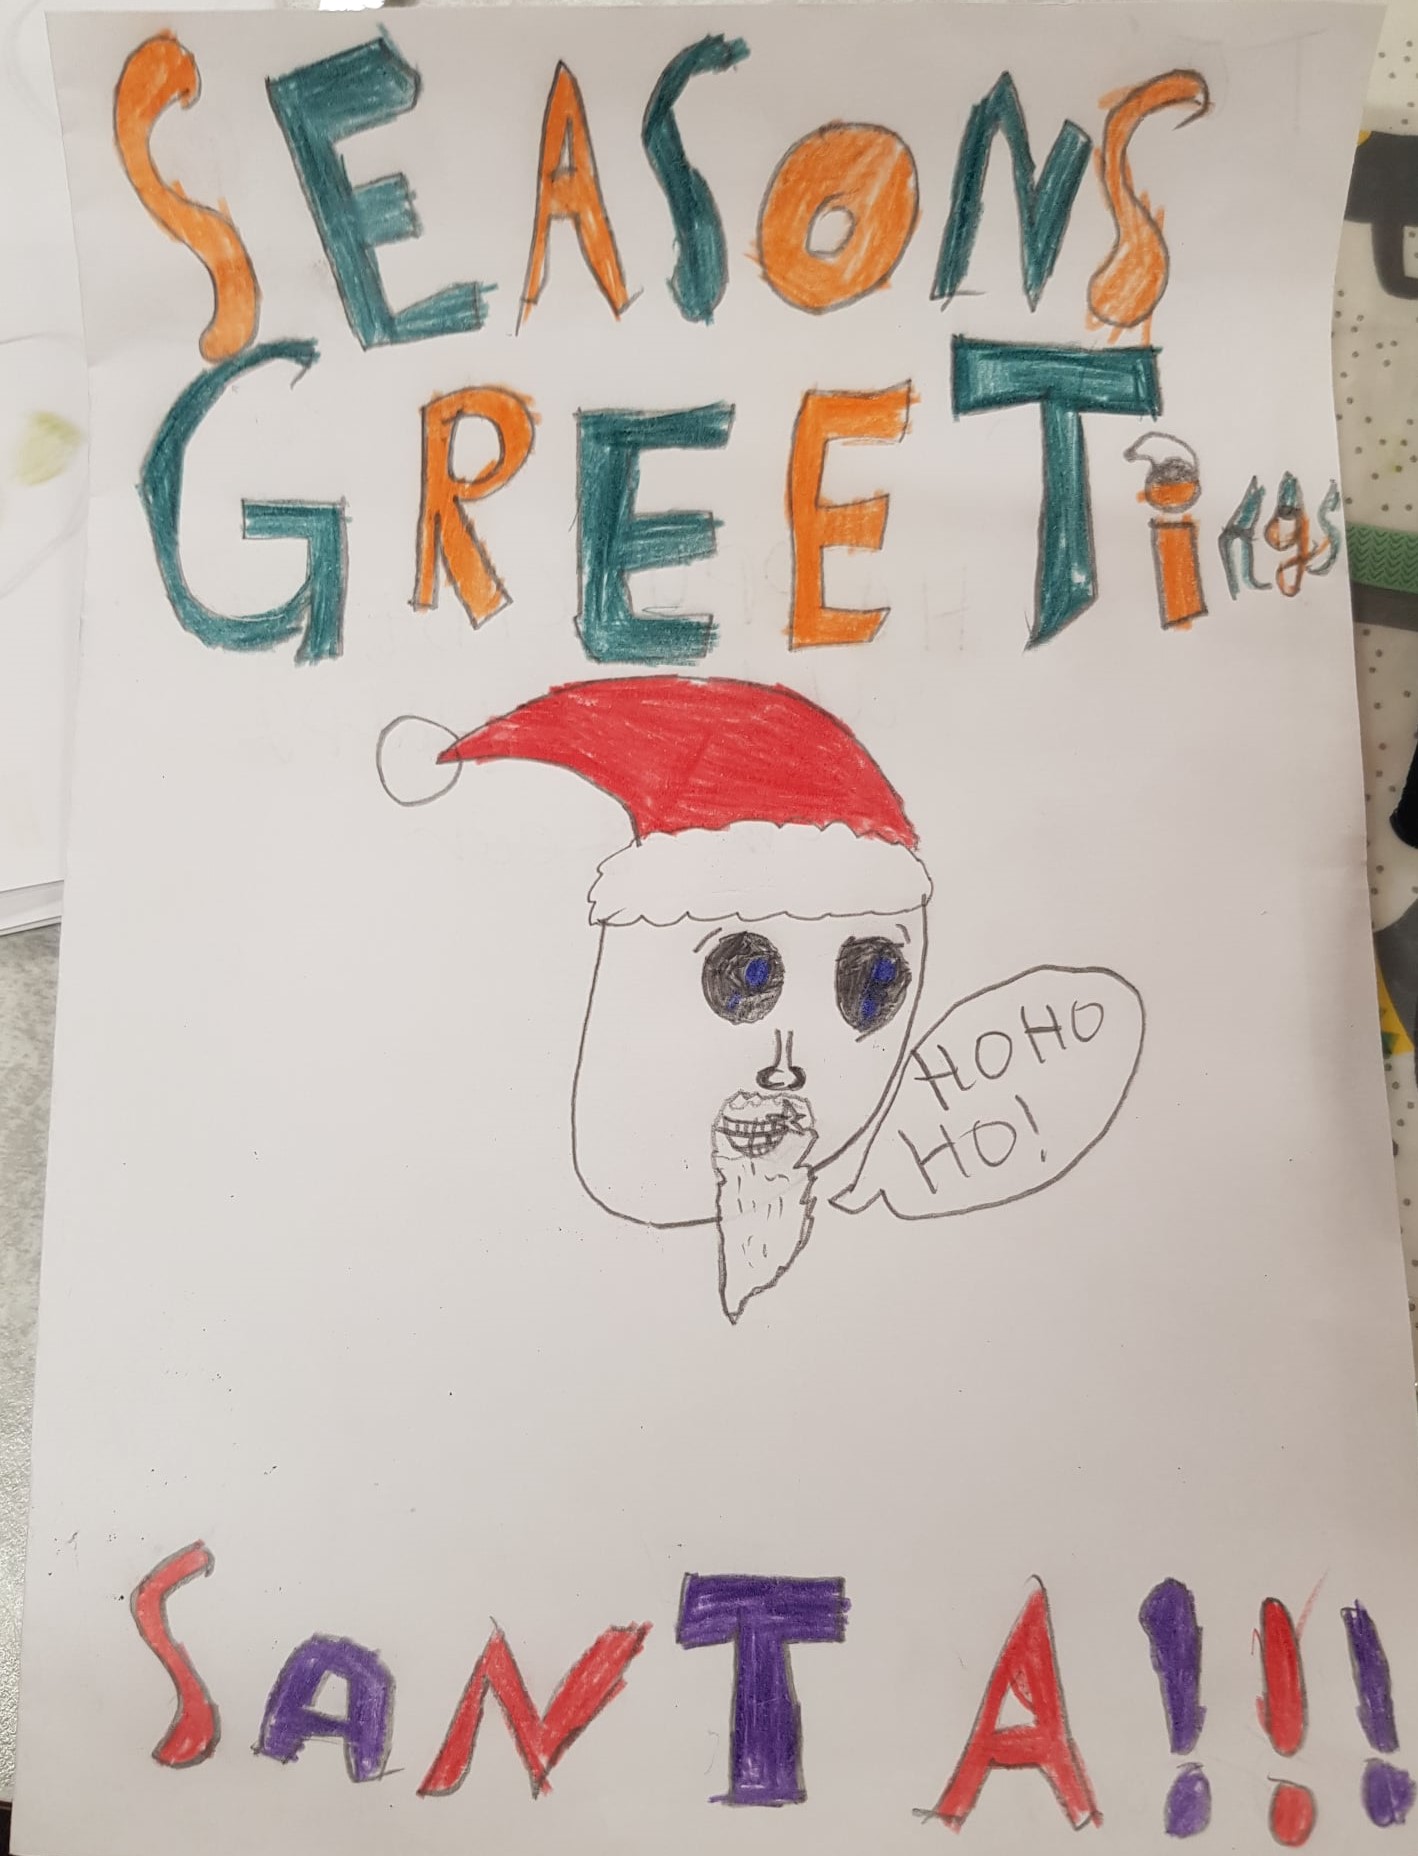 SEASONS
GREETings
HOHO
HO!
SANTA!!!